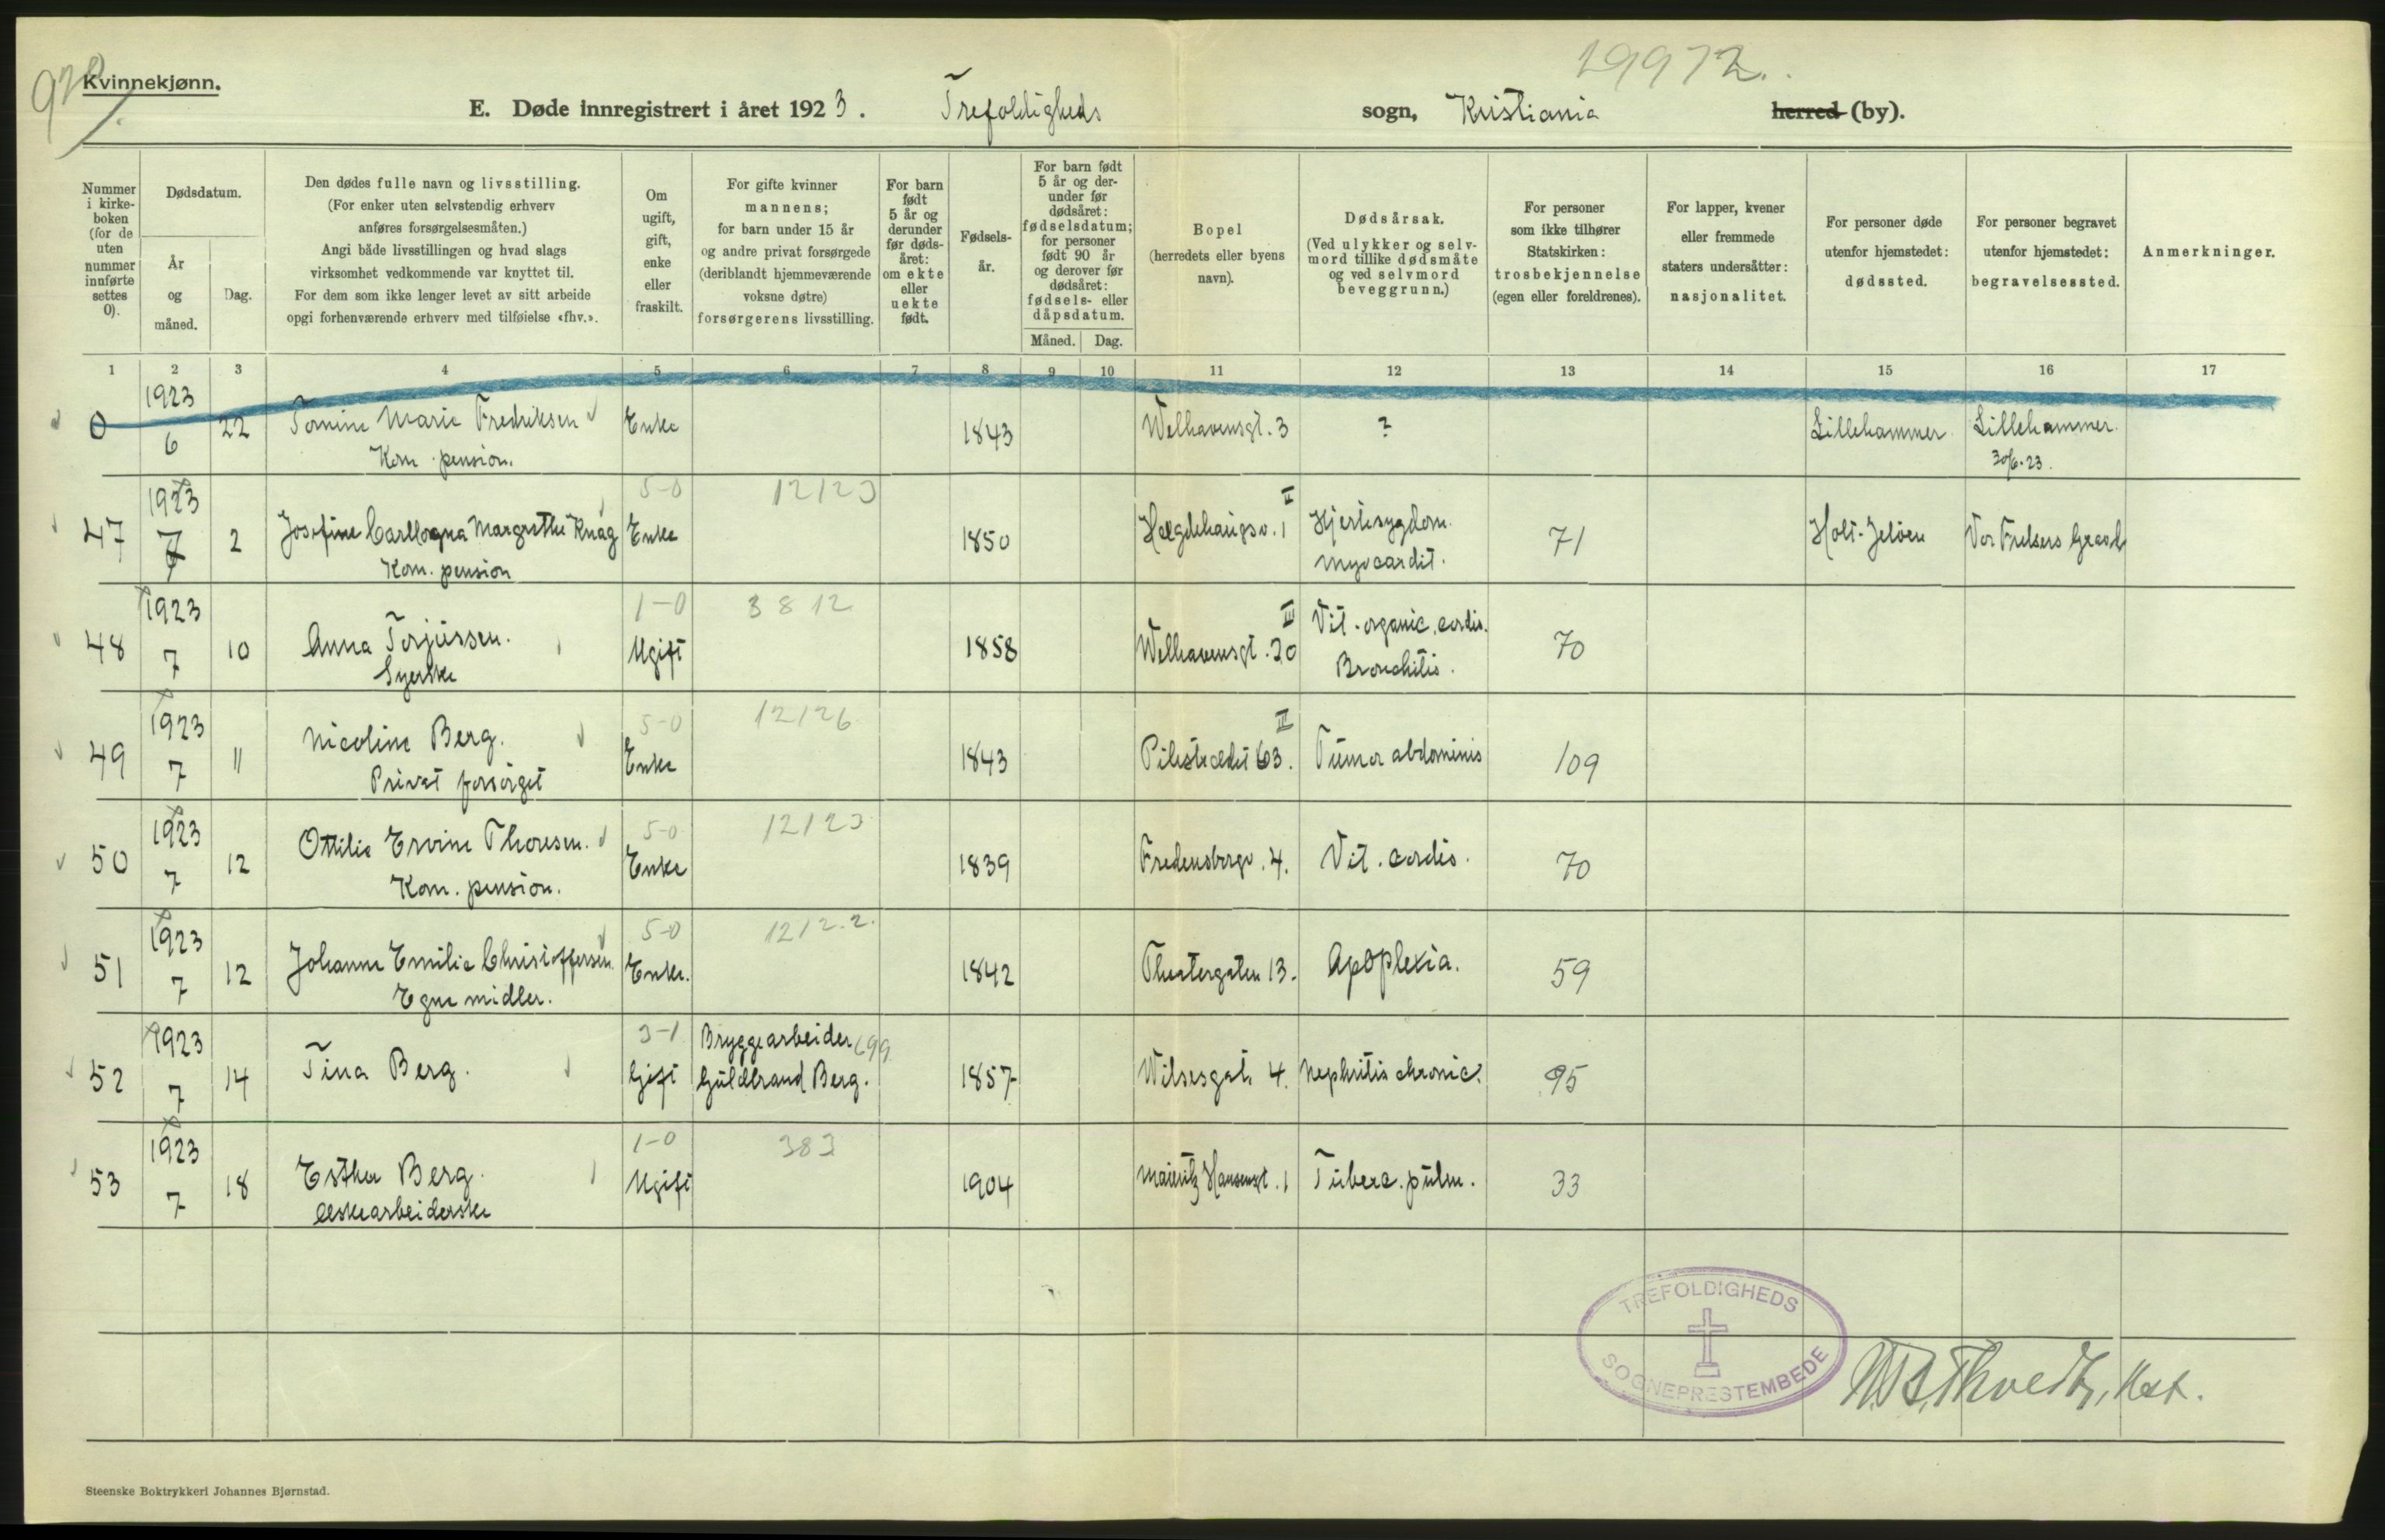 Kvinnekjønn.
19972.
E. Døde innregistrert i året 1923. Trefoldigheds sogn, Kristiania herred (by).
Nummer i kirke-boken (for de uten nummer innførte settes 0).
Dødsdatum.
År og måned.
Dag.
Den dødes fulle navn og livsstilling.
(For enker uten selvstendig erhverv
anføres forsørgelsesmåten.)
Angi både livsstillingen og hvad slags
virksomhet vedkommende var knyttet til.
For dem som ikke lenger levet av sitt arbeide
opgi forhenværende erhverv med tilføielse «fhv.».
Om ugift, gift, enke eller fraskilt.
For gifte kvinner
mannens;
for barn under 15 år
og andre privat forsørgede
(deriblandt hjemmeværende
voksne døtre)
forsørgerens livsstilling.
For barn født 5 år og derunder før døds-året: om ekte eller uekte født.
Fødsels-år.
For barn født 5 år og der-under før dødsåret: fødselsdatum; for personer født 90 år og derover før dødsåret: fødsels- eller dåpsdatum.
Måned. Dag.
Bopel
(herredets eller byens
navn).
Dødsårsak.
(Ved ulykker og selv-
mord tillike dødsmåte
og ved selvmord
beveggrunn.)
For personer
som ikke tilhører
Statskirken:
trosbekjennelse
(egen eller foreldrenes).
For lapper, kvener
eller fremmede
staters undersåtter:
nasjonalitet.
For personer døde
utenfor hjemstedet:
dødssted.
For personer begravet
utenfor hjemstedet:
begravelsessted.
Anmerkninger.
1 2 3 4 5 6 7 8 9 10 11 12 13 14 15 16 17
0 1923 6 22 Tomine Marie Fredriksen Enke 1843 Welhavensgt. 3 ? Lillehammer Lillehammer.
Kom. pension. 30/6-23.
5-0 12123
47 1923 7 2 Josefine Margrethe Knag Enke 1850 Hægdehaugsv. 1 II Hjertesygdom. 71 Holt-Jeløen Vor Frelsers Gravl
Kom. pension myocardit.
1-0 3812
48 1923 7 10 Anna Torjussen. Ugift 1858 Welhavensgt. 20 III Vit. organic. cordis. 70
Syerske Bronchitis.
5-0 12126
49 1923 7 11 Nicoline Berg. Enke 1843 Pilestrædet 63. II Tumor abdominis 109
Privat forsørget
5-0 12123
50 1923 7 12 Ottilie Ervine Thoresen. Enke 1839 Fredensborgv. 4. Vit. cordis. 70
Kom. pension.
5-0 1212.2.
51 1923 7 12 Johanne Emilie Christoffersen Enke. 1842 Theatergaten 13. Apoplexia. 59
Egne midler.
3-1 Bryggearbeider 699
52 1923 7 14 Tina Berg. Gift Guldbrand Berg. 1857 Wilsesgat. 4. Nephritis chronic. 95
1-0 383
53 1923 7 18 Esther Berg. Ugift 1904 Mauritz Hansensgt. 1 Tuberc. pulm. 33
Æskearbeiderske
TREFOLDIGHEDS
SOGNEPRESTEMBEDE
Steenske Boktrykkeri Johannes Bjørnstad.